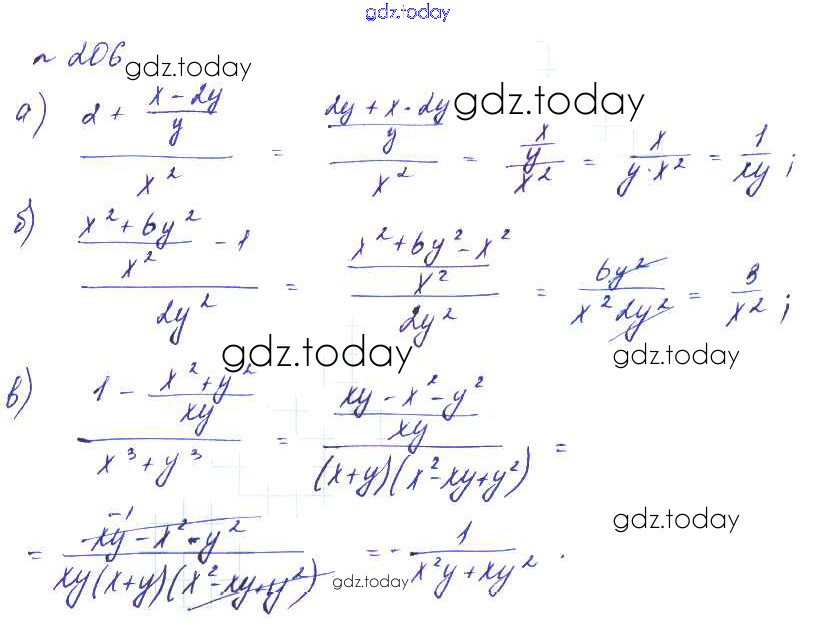 gdz.today
№ 206
gdz.today
а) (2 + (x - 2y)/y)/x² = ((2y + x - 2y)/y)/x² = (x/y)/x² = x/(y·x²) = 1/(xy);
gdz.today
б) ((x² + 6y²)/x² - 1)/(2y²) = ((x² + 6y² - x²)/x²)/(2y²) = 6y²/(x²2y²) = 3/x²;
gdz.today
gdz.today
в) (1 - (x² + y²)/(xy))/(x³ + y³) = ((xy - x² - y²)/(xy))/((x + y)(x² - xy + y²)) =
gdz.today
-1
= (xy - x² - y²)/(xy(x + y)(x² - xy + y²)) = - 1/(x²y + xy²).
gdz.today